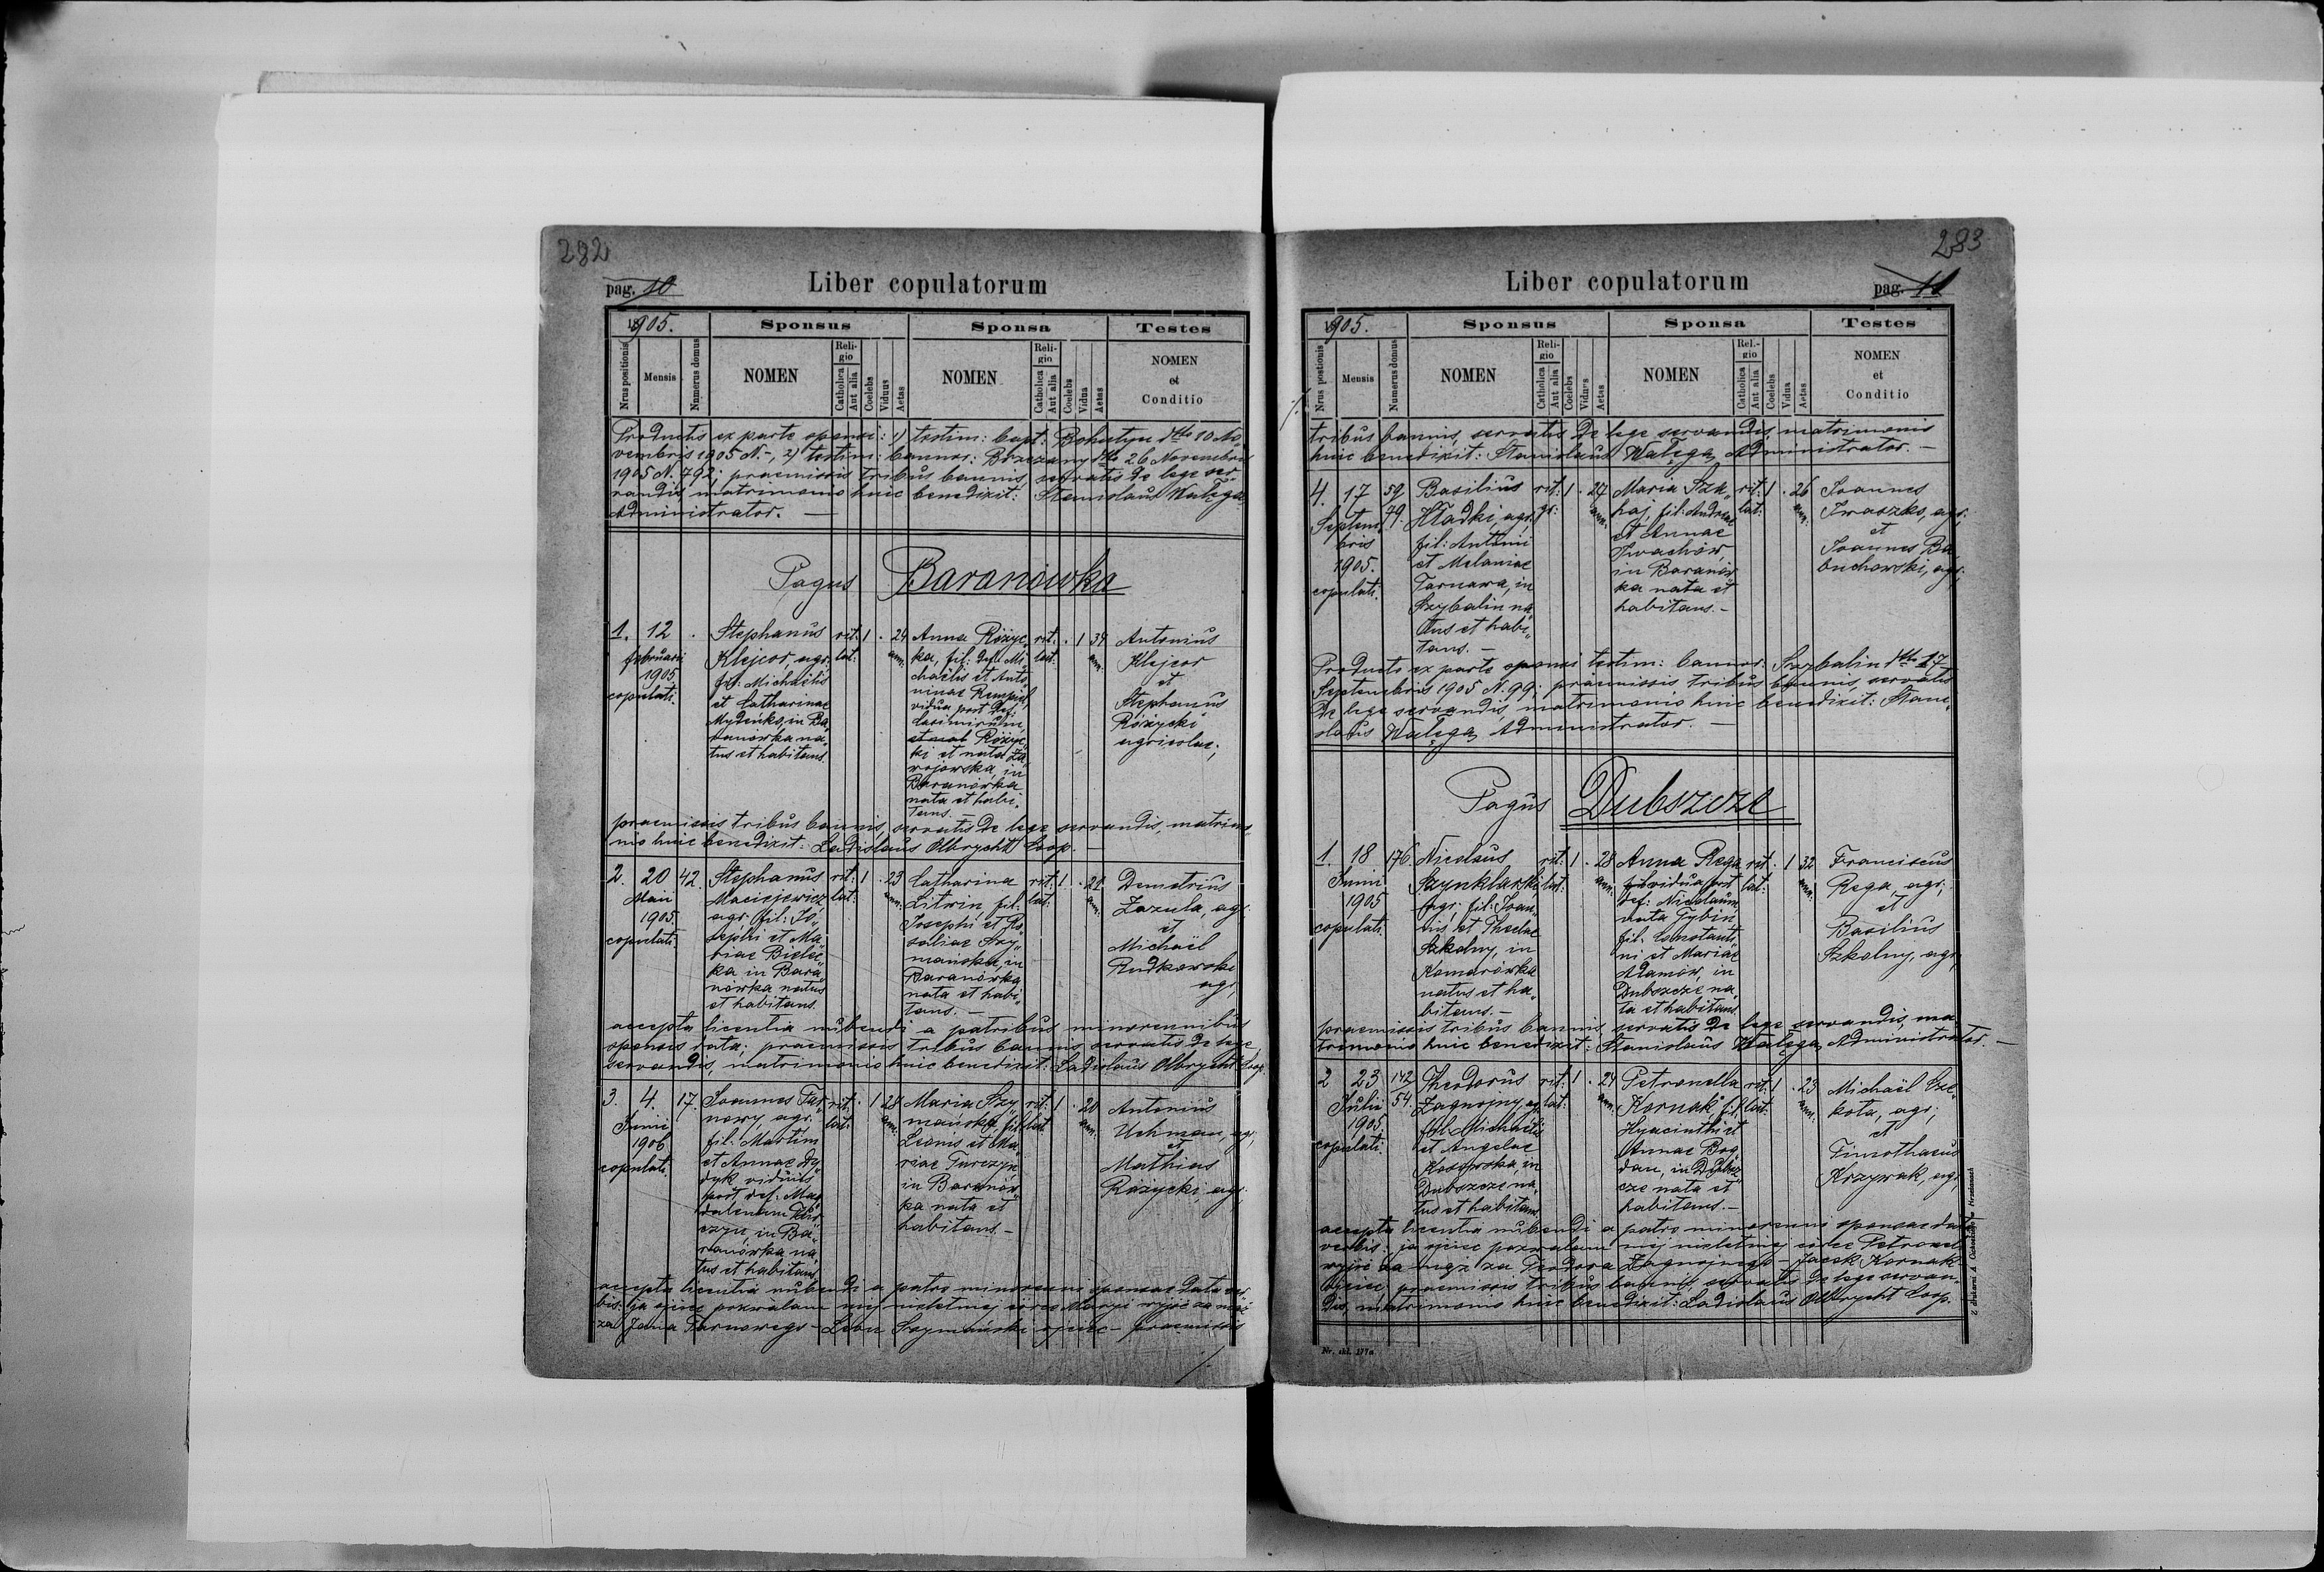 282
pag. 10
Liber copulatorum
1905.
Sponsus
Sponsa
Testes
Nrus positionis
Mensis
Numerus domus
NOMEN
Religio
Catholica
Aut alia
Coelebs
Viduus
Aetas
NOMEN
Religio
Catholica
Aut alia
Coelebs
Vidua
Aetas
NOMEN
et
Conditio
Productis ex parte sponsi: 1) testim: bapt: Bohutyn dtto 10 No„
vembris 1905 N. -, 2) testim: bannor: Brzezany dtto 26 Novembris
1905 N. 792; praemissis tribus bannis, servatis de lege ser„
vandis, matrimonio huic benedixit: Stanislaus Wałęga,
Administrator. —
Pagus Baranówka
1. 12
februarii
1905
copulati.
Stephanus
Klejcor, agr:
fil: Michaëlis
et Catharinae
Mydeńko, in Ba„
ranówka na„
tus et habitans.
rit:
lat:
1 . 24
ann:
Anna Różyc„
ka, fil: def: Mi„
chaëlis et Anto„
ninae
vidua post def:
Casimirum,
Różyc„
ki et nata Za„
wojowska, in
Baranówka
nata et habi„
tans. —
rit:
lat:
. 1 34
ann:
Antonius
Klejcor
et
Stephanus
Różycki
agricolae;
praemissis tribus bannis, servatis de lege servandis, matrimo„
nio huic benedixit: Ladislaus Olbrycht Coop. —
2. 20 42.
Maii
1905
copulati.
Stephanus
Maciejewicz,
agr: fil: Jo„
sephi et Ma„
riae Bielec„
ka in Bara„
nówka natus
et habitans.
rit:
lat:
1 . 23
ann:
Catharina
Litwin, fil:
Josephi et Ro„
saliae Szy„
mańska, in
Baranówka
nata et habi„
tans. —
rit:
lat:
1 . 21
ann:
Demetrius
Zazula, agr:
et
Michaël
Rudkowski
agr;
accepta licentia nubendi a patribus minorennibus
sponsis data; praemissis tribus bannis, servatis de lege
servandis, matrimonio huic benedixit: Ladislaus Olbrycht Coop.
3. 4. 17.
Junii
1905
copulati.
Joannes Tar„
nowy, agr:
fil: Martini
et Annae Dy„
dyk viduus
post def: Mag„
dalenam
in Ba„
ranówka na„
tus et habitans
rit:
lat:
. 1 28
ann:
Maria Szy„
mańska, fil:
Leonis et Ma„
riae Turczyn
in Baranów„
ka nata et
habitans. —
rit:
lat:
1 . 20
ann:
Antonius
Uchman, agr;
et
Mathias
Różycki, agr.
accepta licentia nubendi a patre minorenni sponsae data ver„
bis: ja ojciec pozwalam mej nieletniej córce Maryi wyjść za mąż
za Jana Tarnowego - Leon Szymański ojciec - praemissis
283
Liber copulatorum
pag. 11
1905.
Sponsus
Sponsa
Testes
Nrus postionis
Mensis
Numerus domus
NOMEN
Religio
Catholica
Aut alia
Coelebs
Viduus
Aetas
NOMEN
Rel.-gio
Catholica
Aut alia
Coelebs
Vidua
Aetas
NOMEN
et
Conditio
tribus bannis, servatis de lege servandis, matrimonio
huic benedixit: Stanislaus Wałęga, Administrator. —
4. 17 59
Septem„ 79.
bris
1905.
copulati.
Basilius
Hładki, agr;
fil: Antonii
et Melaniae
Tarnawa, in
Szybalin na„
tus et habi„
tans. —
rit:
gr:
1 . 27
ann:
Maria Szk„
haj, fil: Andreae
et Annae
Iwachów
in Baranów„
ka nata et
habitans. —
rit:
lat:
1 . 26
ann:
Joannes
Iwaszko, agr;
et
Joannes Ba„
buchowski, agr;
Producto ex parte sponsi testim: bannor: Szybalin dtto 17
Septembris 1905 N. 99; praemissis tribus bannis, servatis
de lege servandis, matrimonio huic benedixit: Stani„
slaus Wałęga, Administrator. —
Pagus Dubszcze
1. 18 176
Junii
1905
copulati.
Nicolaus
Szynklarski
agr; fil: Joan„
nis et Theclae
Szkolny, in
Komarówka
natus et ha„
bitans. —
rit:
lat:
1 . 28
ann:
Anna Rega
vidua post
def: Nicolaum,
nata Tybin
fil: Constanti„
ni et Mariae
Adamów, in
Dubszcze na„
ta et habitans.
rit:
lat:
. 1 32
ann:
Franciscus
Rega, agr;
et
Basilius
Szkolny, agr;
praemissis tribus bannis, servatis de lege servandis, ma„
trimonio huic benedixit: Stanislaus Wałęga, Administrator. —
2 23 142
Julii 54.
1905
copulati.
Theodorus
Zagnojny, agr
fil: Michaëlis
et Angelae
Kosowska, in
Dubszcze na„
tus et habitans
rit:
lat:
1 . 24
ann:
Petronella
Kornak, fil:
Hyacinthi et
Annae Bog„
dan, in Dubsz„
cze nata et
habitans. —
rit:
lat:
1 . 23
ann:
Michaël Sze„
kota, agr;
et
Timothaeus
Krzywak, agr;
accepta licentia nubendi a patre minorenni sponsae data
verbis: ja ojciec pozwalam mej nieletniej córce Petroneli
wyjść za mąż za Teodora Zagnojnego - Jacek Kornak
Ojciec; praemissis tribus bannis, servatis de lege servan„
dis, matrimonio huic benedixit: Ladislaus Olbrycht Coop.
Nr. skl. 177a